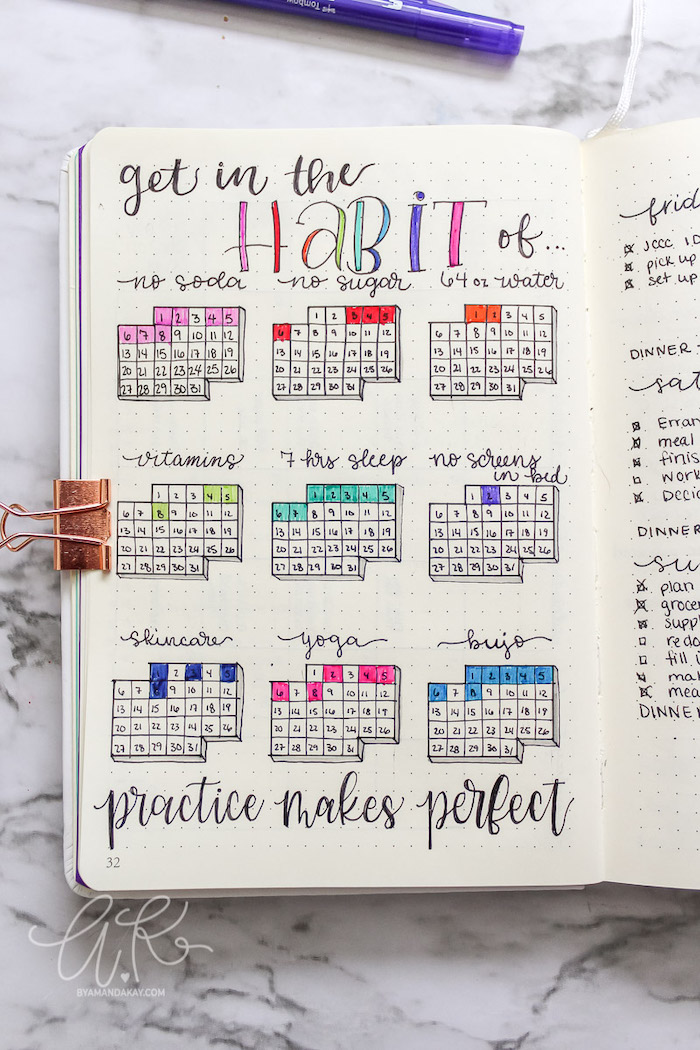 Tombow
get in the
HABIT of...
no soda
1 2 3 4 5
6 7 8 9 10 11 12
13 14 15 16 17 18 19
20 21 22 23 24 25 26
27 28 29 30 31
no sugar
1 2 3 4 5
6 7 8 9 10 11 12
13 14 15 16 17 18 19
20 21 22 23 24 25 26
27 28 29 30 31
64 oz water
1 2 3 4 5
6 7 8 9 10 11 12
13 14 15 16 17 18 19
20 21 22 23 24 25 26
27 28 29 30 31
vitamins
1 2 3 4 5
6 7 8 9 10 11 12
13 14 15 16 17 18 19
20 21 22 23 24 25 26
27 28 29 30 31
7 hrs sleep
1 2 3 4 5
6 7 8 9 10 11 12
13 14 15 16 17 18 19
20 21 22 23 24 25 26
27 28 29 30 31
no screens
in bed
1 2 3 4 5
6 7 8 9 10 11 12
13 14 15 16 17 18 19
20 21 22 23 24 25 26
27 28 29 30 31
skincare
1 2 3 4 5
6 7 8 9 10 11 12
13 14 15 16 17 18 19
20 21 22 23 24 25 26
27 28 29 30 31
yoga
1 2 3 4 5
6 7 8 9 10 11 12
13 14 15 16 17 18 19
20 21 22 23 24 25 26
27 28 29 30 31
bujo
1 2 3 4 5
6 7 8 9 10 11 12
13 14 15 16 17 18 19
20 21 22 23 24 25 26
27 28 29 30 31
practice makes perfect
32
frid
JCCC
pick up
set up
DINNER
sat
Erran
meal
finis
work
DINNER
su
plan
groce
suppl
redo
fill
mak
mea
DINNER
A.K
BYAMANDAKAY.COM